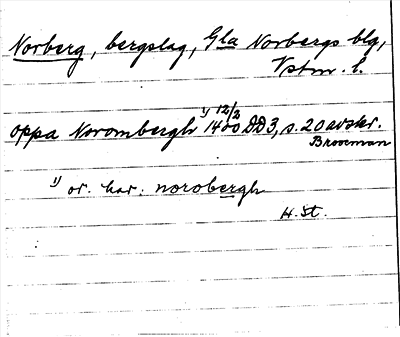 Norberg, bergslag, Gla Norbergs blg,
Vstm. l.
oppa Norombergh ¹⁾ 12/2 1400 DD3, s. 20 avskr.
Brooman
¹⁾ or. har. norobergh
H. St.